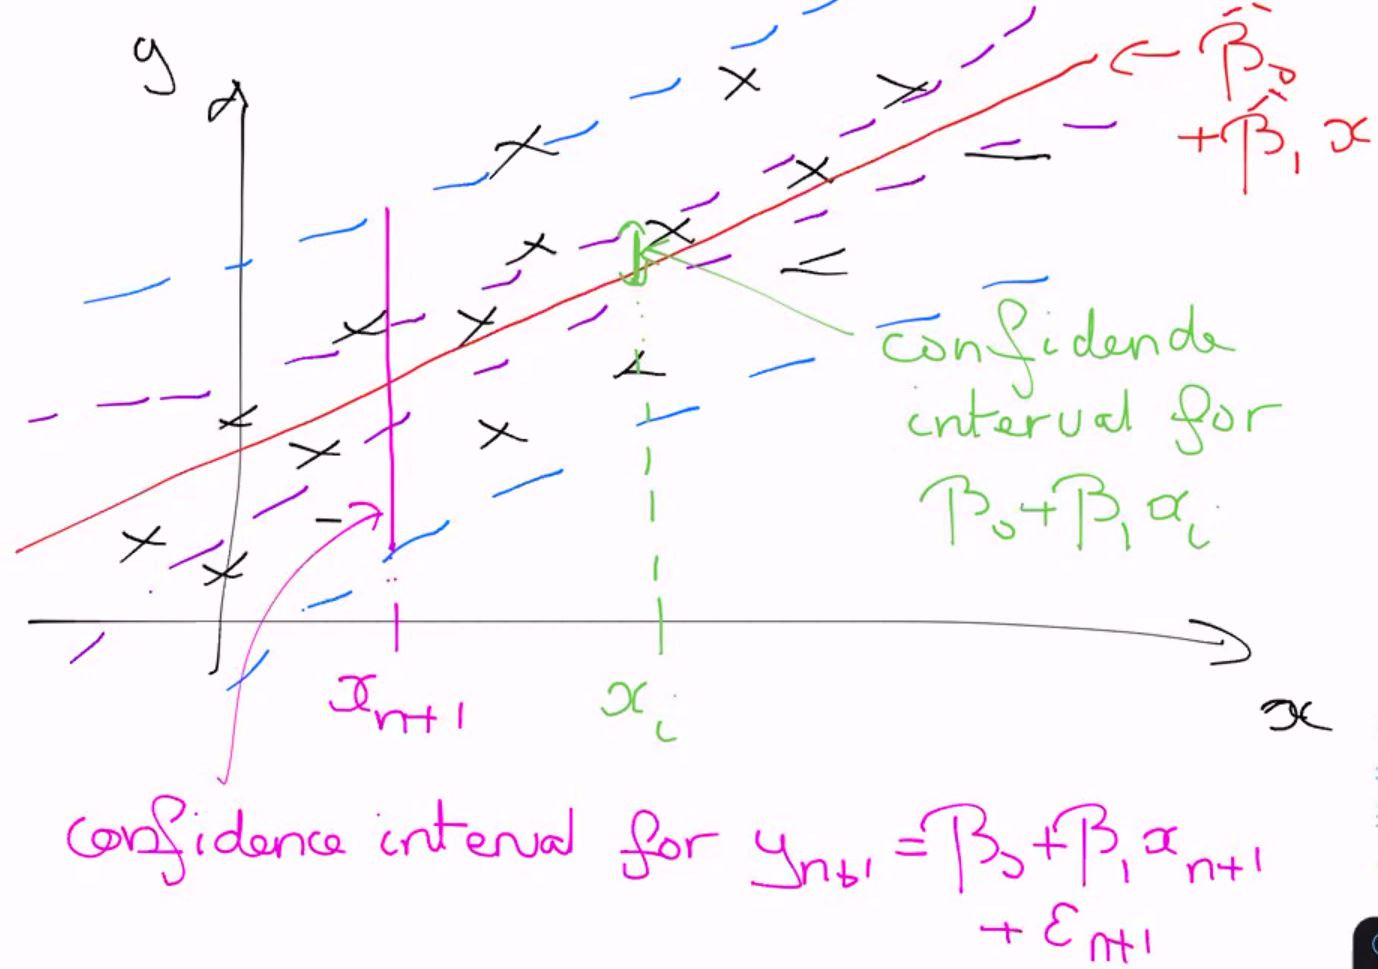 y
← β̂₀
+ β̂₁ x
confidende
interval for
β₀ + β₁ xᵢ
xₙ₊₁
xᵢ
x
confidence interval for yₙ₊₁ = β₀ + β₁ xₙ₊₁
+ εₙ₊₁